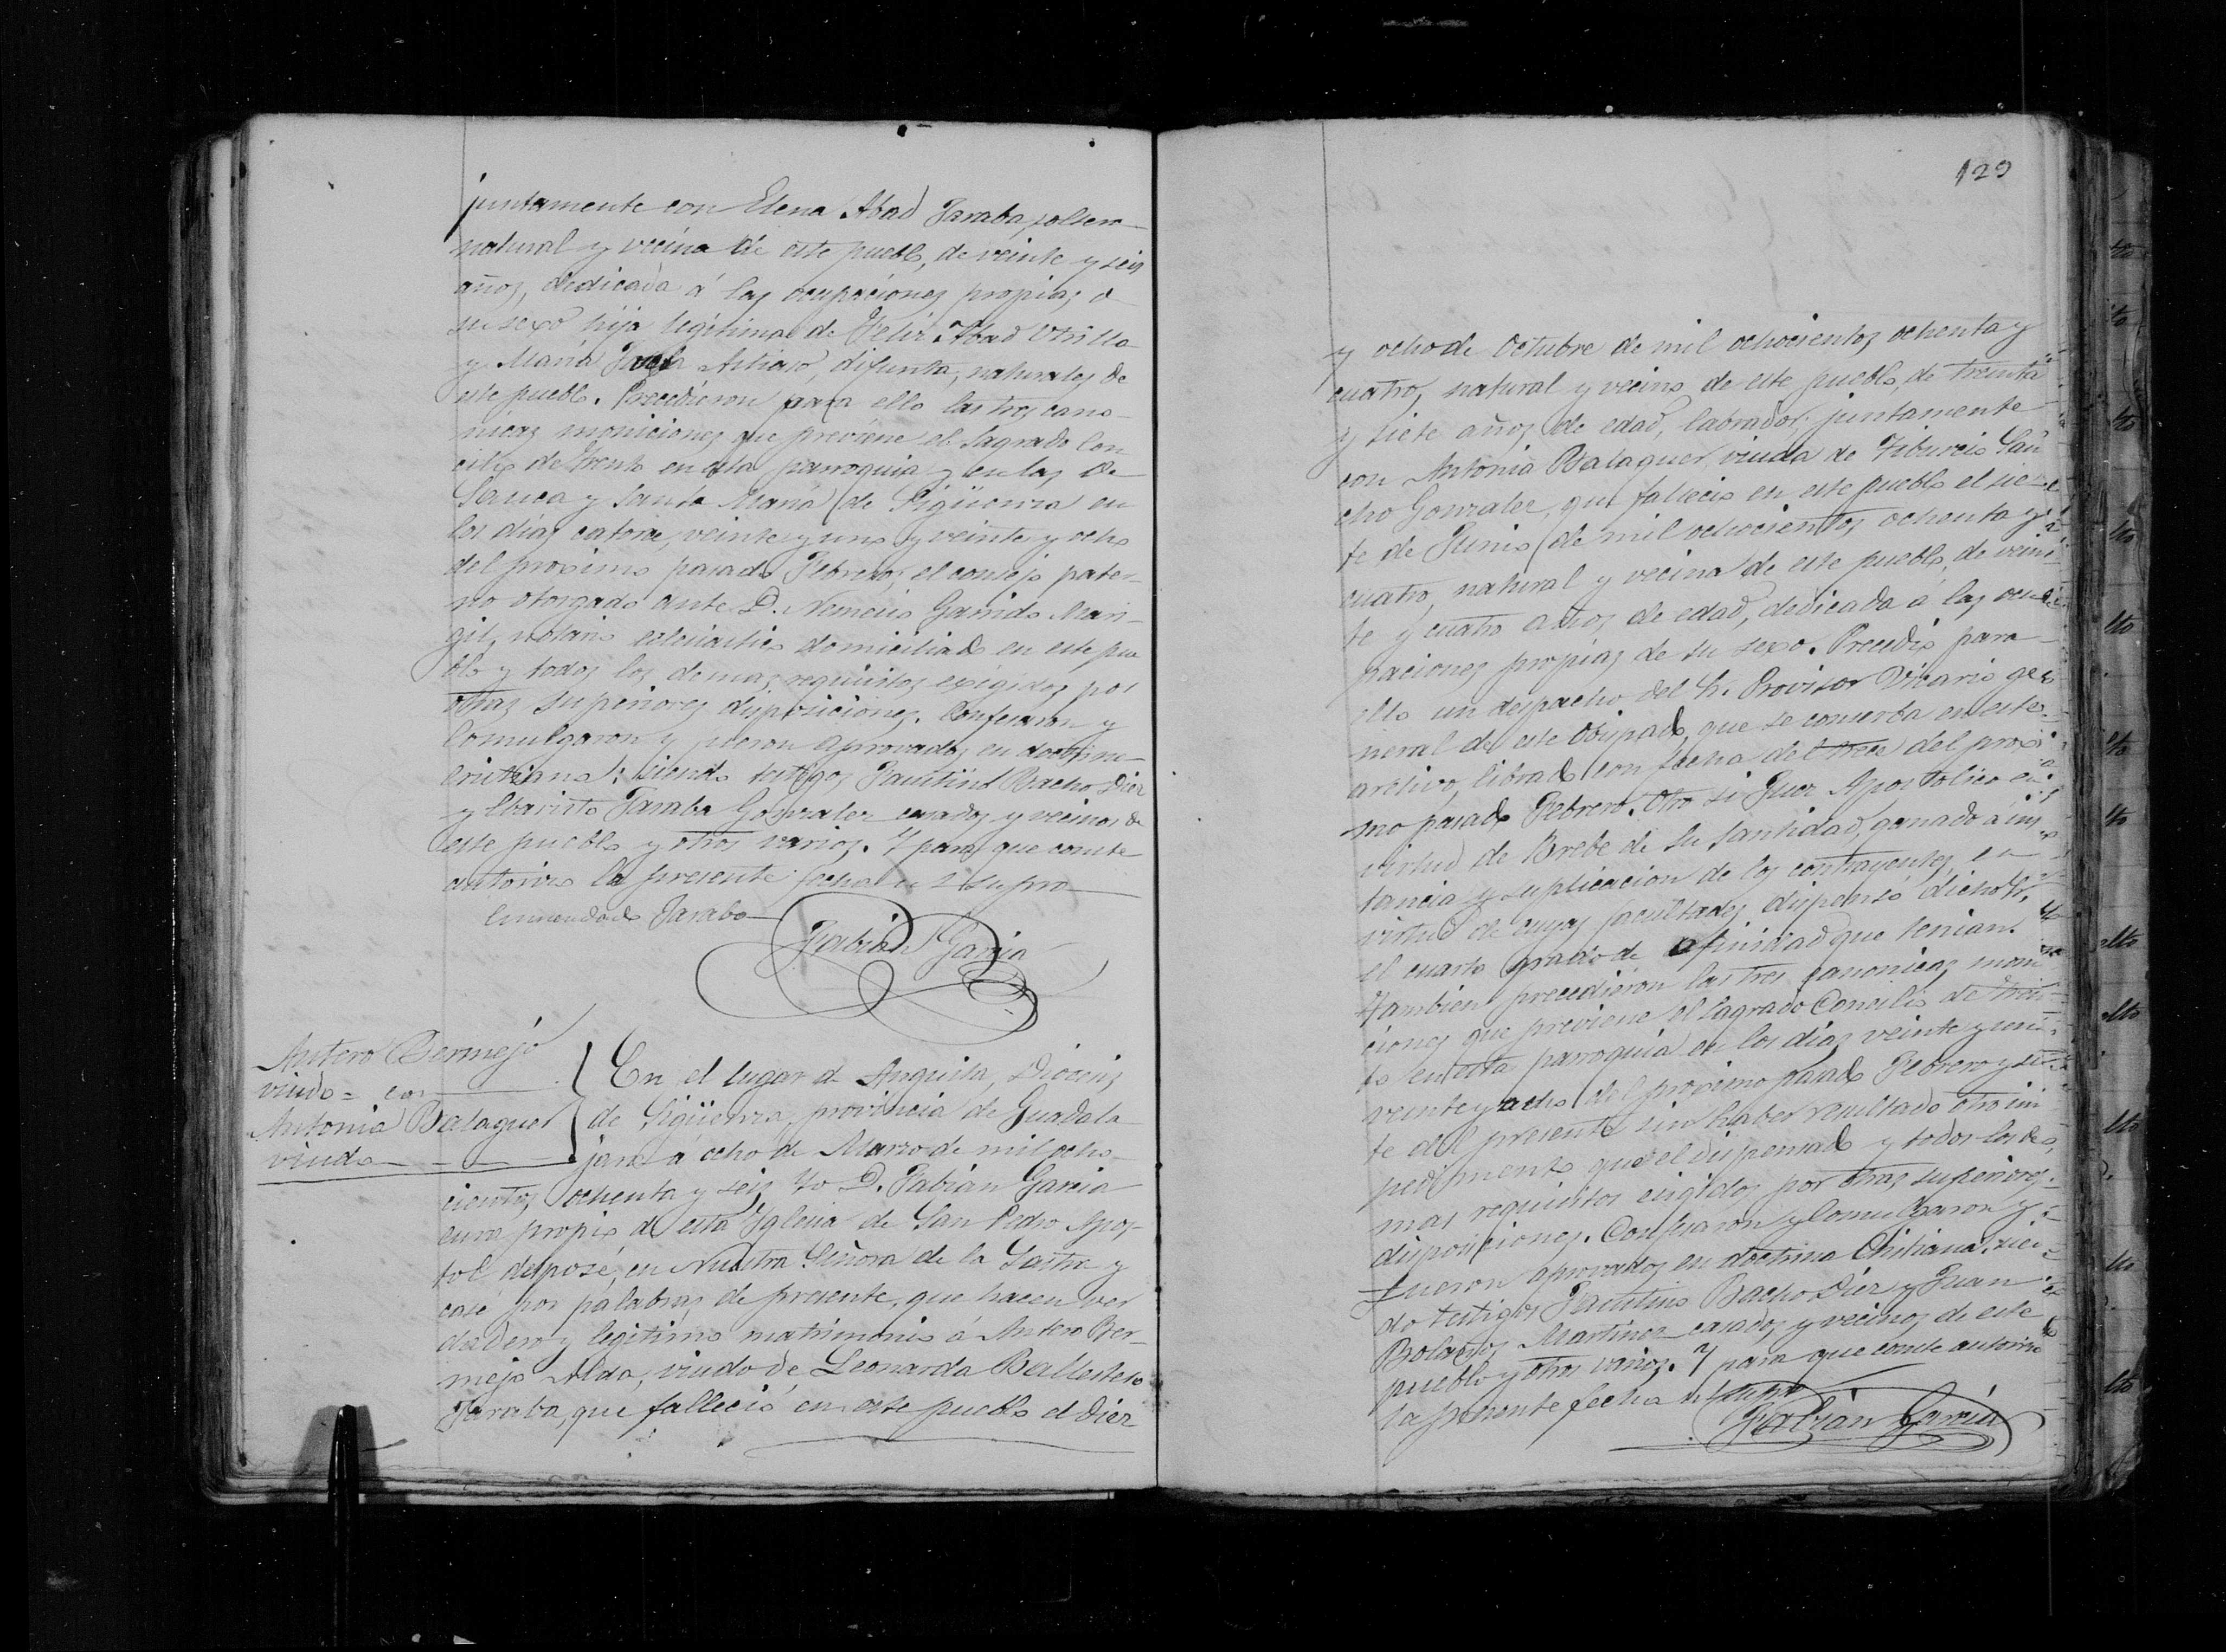 juntamente con Elena Abad Taraba, soltera
natural y vecina de este pueblo, de veinte y seis
años, dedicada á las ocupaciones propias d
su sexo hija legitima de Felix Abad Utrilla
y Maria Taraba difunta, naturales de
este pueblo. Precedieron para ello las tres cano-
nicas moniciones que previene el Sagrado Con
cilio de Trento en esta parroquia y en las de
Sauca y Santa Maria de Sigüenza en
los dias catorce, veinte y uno y veinte y ocho
del proximo pasado Febrero; el consejo pater-
no otorgado ante D. Nemesio Garrido Man-
gil, notario eclesiastico domiciliado en este pue
blo y todos los demas requisitos exigidos por
otras superiores disposiciones. Confesaron y
Comulgaron y fueron aprovados en doctrina
Cristiana: siendo testigos Faustino Bacho Diez
y Ebaristo Taraba Gonzalez casados y vecinos de
este pueblo y otros varios. Y para que conste
autorizo la presente fecha ut supra
Enmendado Taraba
Fabian Garcia
Antero Bermejo
viudo = con
Antonia Balaguer
viuda
En el lugar de Anguita, Diócesis
de Sigüenza, provincia de Guadala
jara á ocho de Marzo de mil ocho-
cientos ochenta y seis Yo D. Fabián Garcia
cura propio de esta Yglesia de San Pedro Apos-
tol desposé, en Nuestra Señora de la Lastra y
casé por palabras de presente, que hacen ver
dadero y legitimo matrimonio á Antero Ber-
mejo Alda, viudo de Leonarda Ballestero
Taraba, que falleció en este pueblo el diez
129
y ocho de Octubre de mil ochocientos ochenta y
cuatro, natural y vecino de este pueblo, de treinta
y siete años de edad, labrador; juntamente
con Antonia Balaguer, viuda de Tiburcio San
cho Gonzalez, que fallecio en este pueblo el sie-
te de Junio de mil ochocientos ochenta y
cuatro, natural y vecina de este pueblo, de vein
te y cuatro años de edad, dedicada á las ocu
paciones propias de su sexo. Precedió para
ello un despacho del Sr. Provisor Vicario ge
neral de este Obispado, que se conserba en este
archivo, librado con fecha de trece del proxi
mo pasado Febrero. Otro si Juez Apostolico en
virtud de Brebe de Su Santidad, ganado a ins
tancia y suplicacion de los contrayentes, en
virtud de cuyas facultades dispensó dicho Sr.
el cuarto grado de afinidad que tenian.
Tambien precedieron las tres canonicas moni
ciones que previene el Sagrado Concilio de Tren
to en esta parroquia en los dias veinte y uno
veinte y ocho del proximo pasado Febrero y sie
te del presente sin haber resultado otro im
pedimento que el dispensado y todos los de
mas requisitos exigidos por otras superiores
disposiciones. Confesaron y Comulgaron y
fueron aprovados en doctrina Cristiana, sien
do testigos Faustino Bacho Diez y Juan
Bolaños Martinez casados y vecinos de este
pueblo y otros varios. Y para que conste autorizo
la presente fecha ut supra
Fabián Garcia